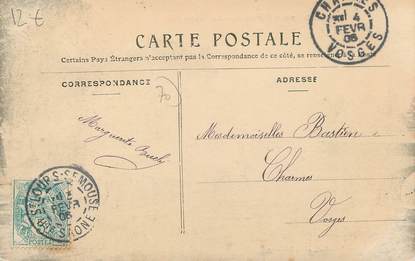 12 €
CHARMES
4
FEVR
06
VOSGES
CARTE POSTALE
Certains Pays Étrangers n'acceptant pas la Correspondance de ce côté, se renseigner
CORRESPONDANCE
ADRESSE
70
Marguerite
Mesdemoiselles Bastien
Charmes
Vosges
St LOUP-S-SEMOUSE
3
FEVR
06
Hte SAONE
POSTES